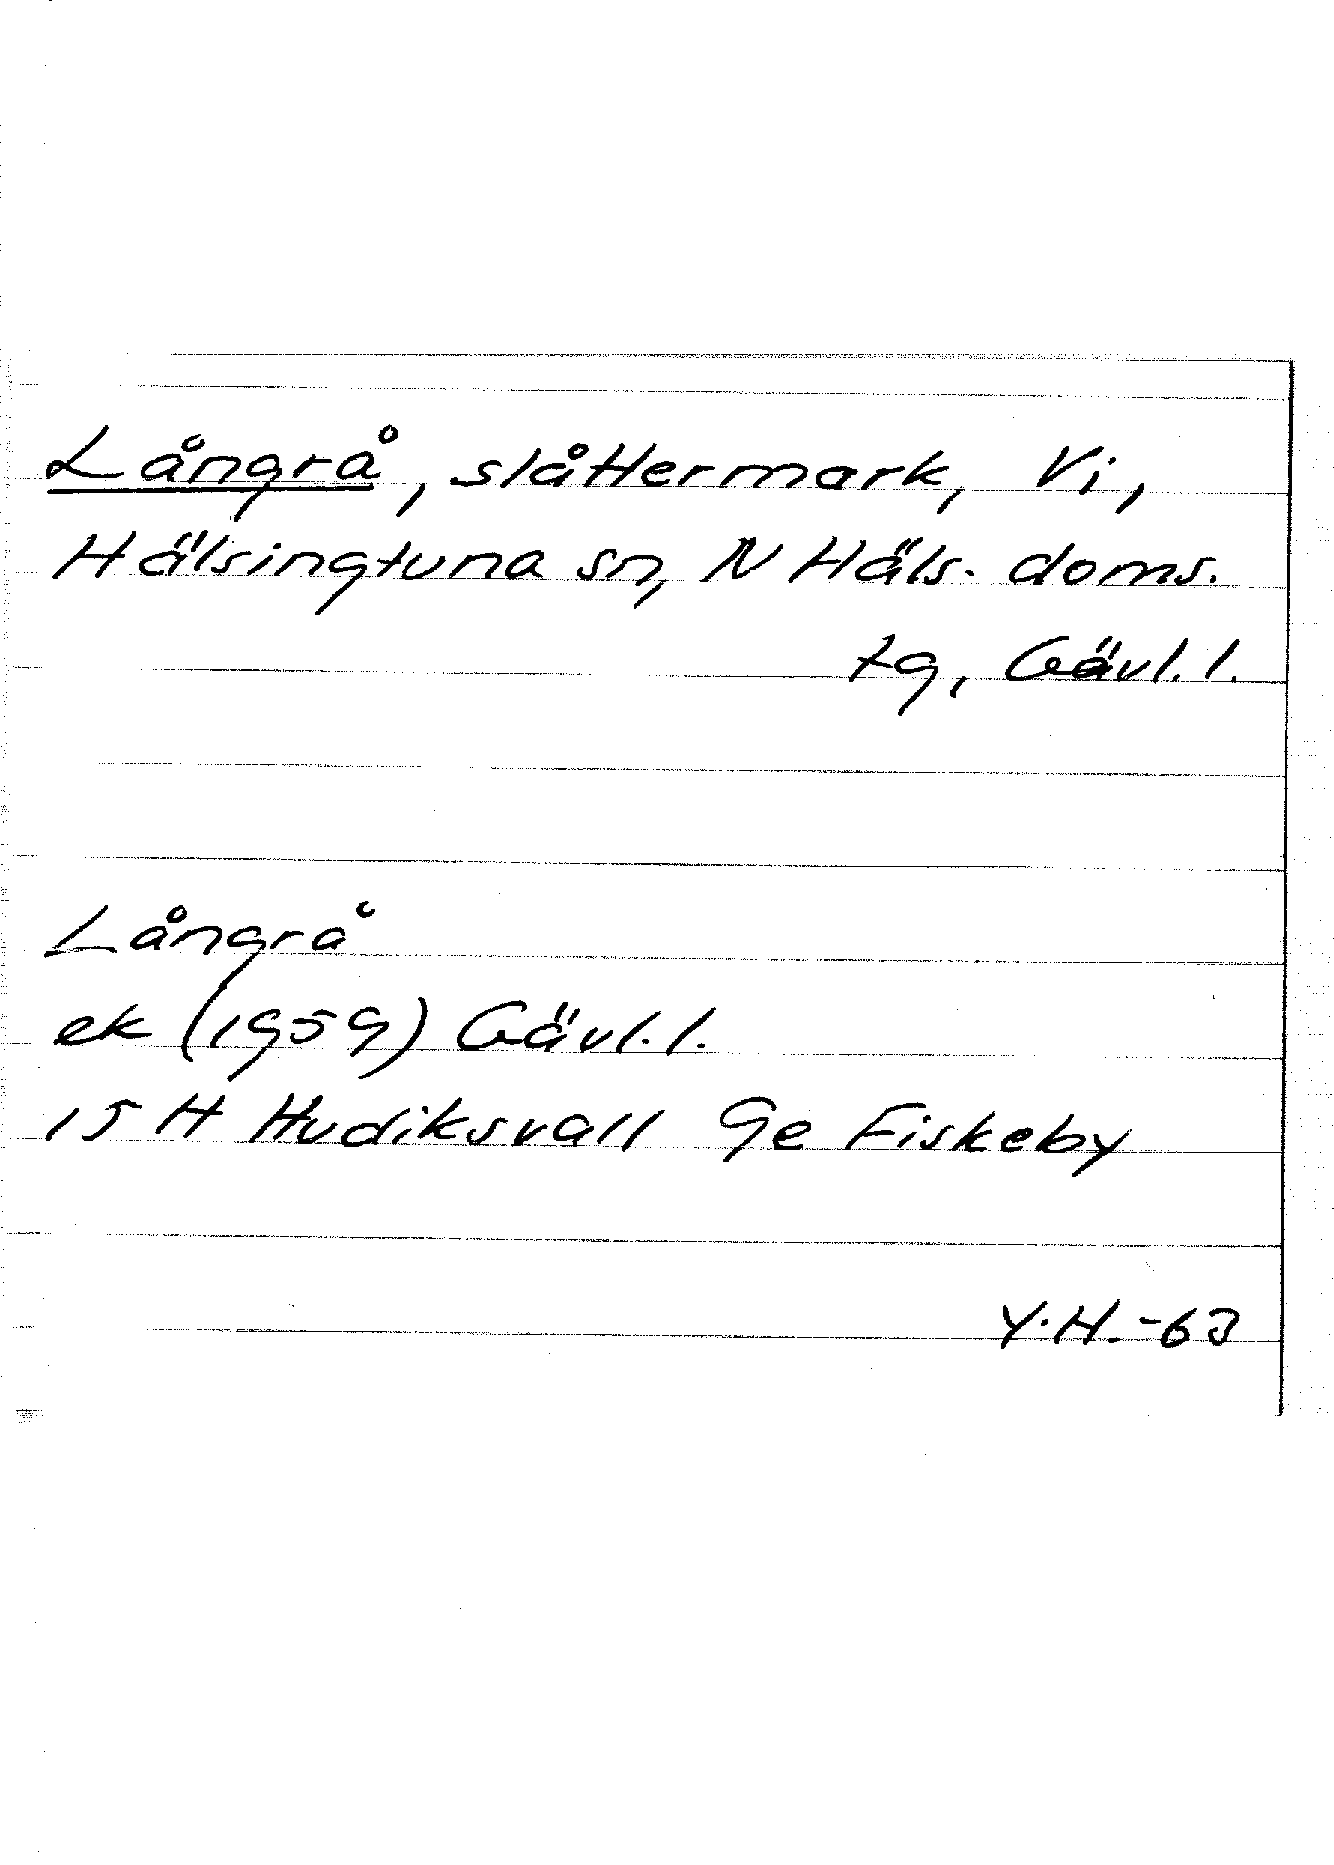 Långrå, slåttermark, Vi,
Hälsingtuna sn, N Häls. doms.
tg, Gävl. l.
Långrå
ek (1959) Gävl. l.
15 H Hudiksvall 9e Fiskeby
Y.H.-63